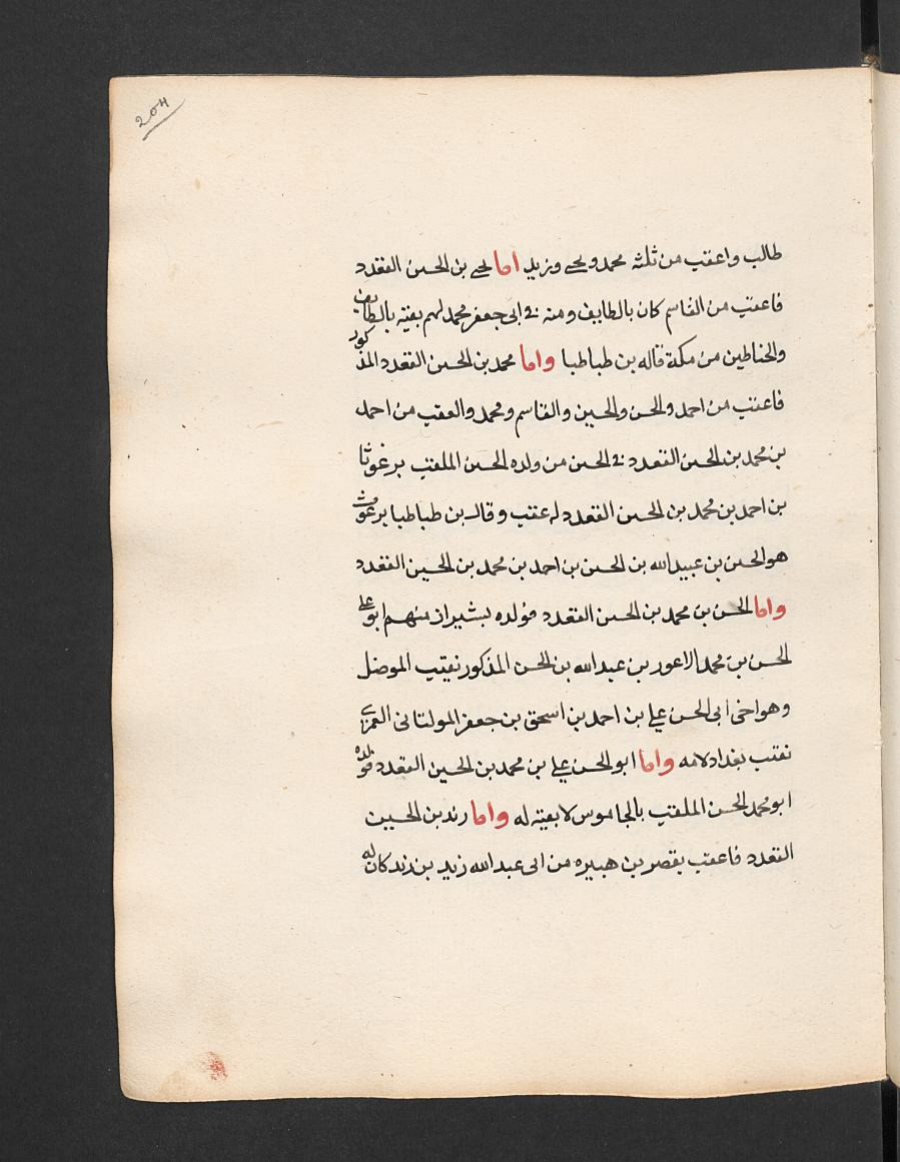 204
طالب واعقب من ثلثه محمد ويحي وزيد اما يحي بن الحسن القعدد
فاعقب من القاسم كان بالطايف ومنه في ابي جعفر محمد لهم بقيه بالطايف
والحناطين من مكة قاله بن طباطبا واما محمد بن الحسن القعدد المذكور
فاعقب من احمد والحسن والحسين والقاسم ومحمد والعقب من احمد
بن محمد بن الحسن القعدد في الحسن من ولده الحسن الملقب برغوثا
بن احمد بن محمد بن الحسن القعدد له عقب وقال بن طباطبا برغوث
هو الحسن بن عبيد الله بن الحسن بن احمد بن محمد بن الحسين القعدد
واما الحسن بن محمد بن الحسن القعدد فولده بشيراز منهم ابو علي
الحسن بن محمد الاعور بن عبد الله بن الحسن المذكور نقيب الموصل
وهو اخي ابي الحسن علي بن احمد بن اسحق بن جعفر المولتاني العمري
نقتب بغداد لامه واما ابو الحسن علي بن محمد بن الحسين القعدد فولده
ابو محمد الحسن الملقب بالجاموس لا بقيه له واما زيد بن الحسين
القعدد فاعقب بقصر بن هبيره من ابي عبد الله زيد بن زيد كان له